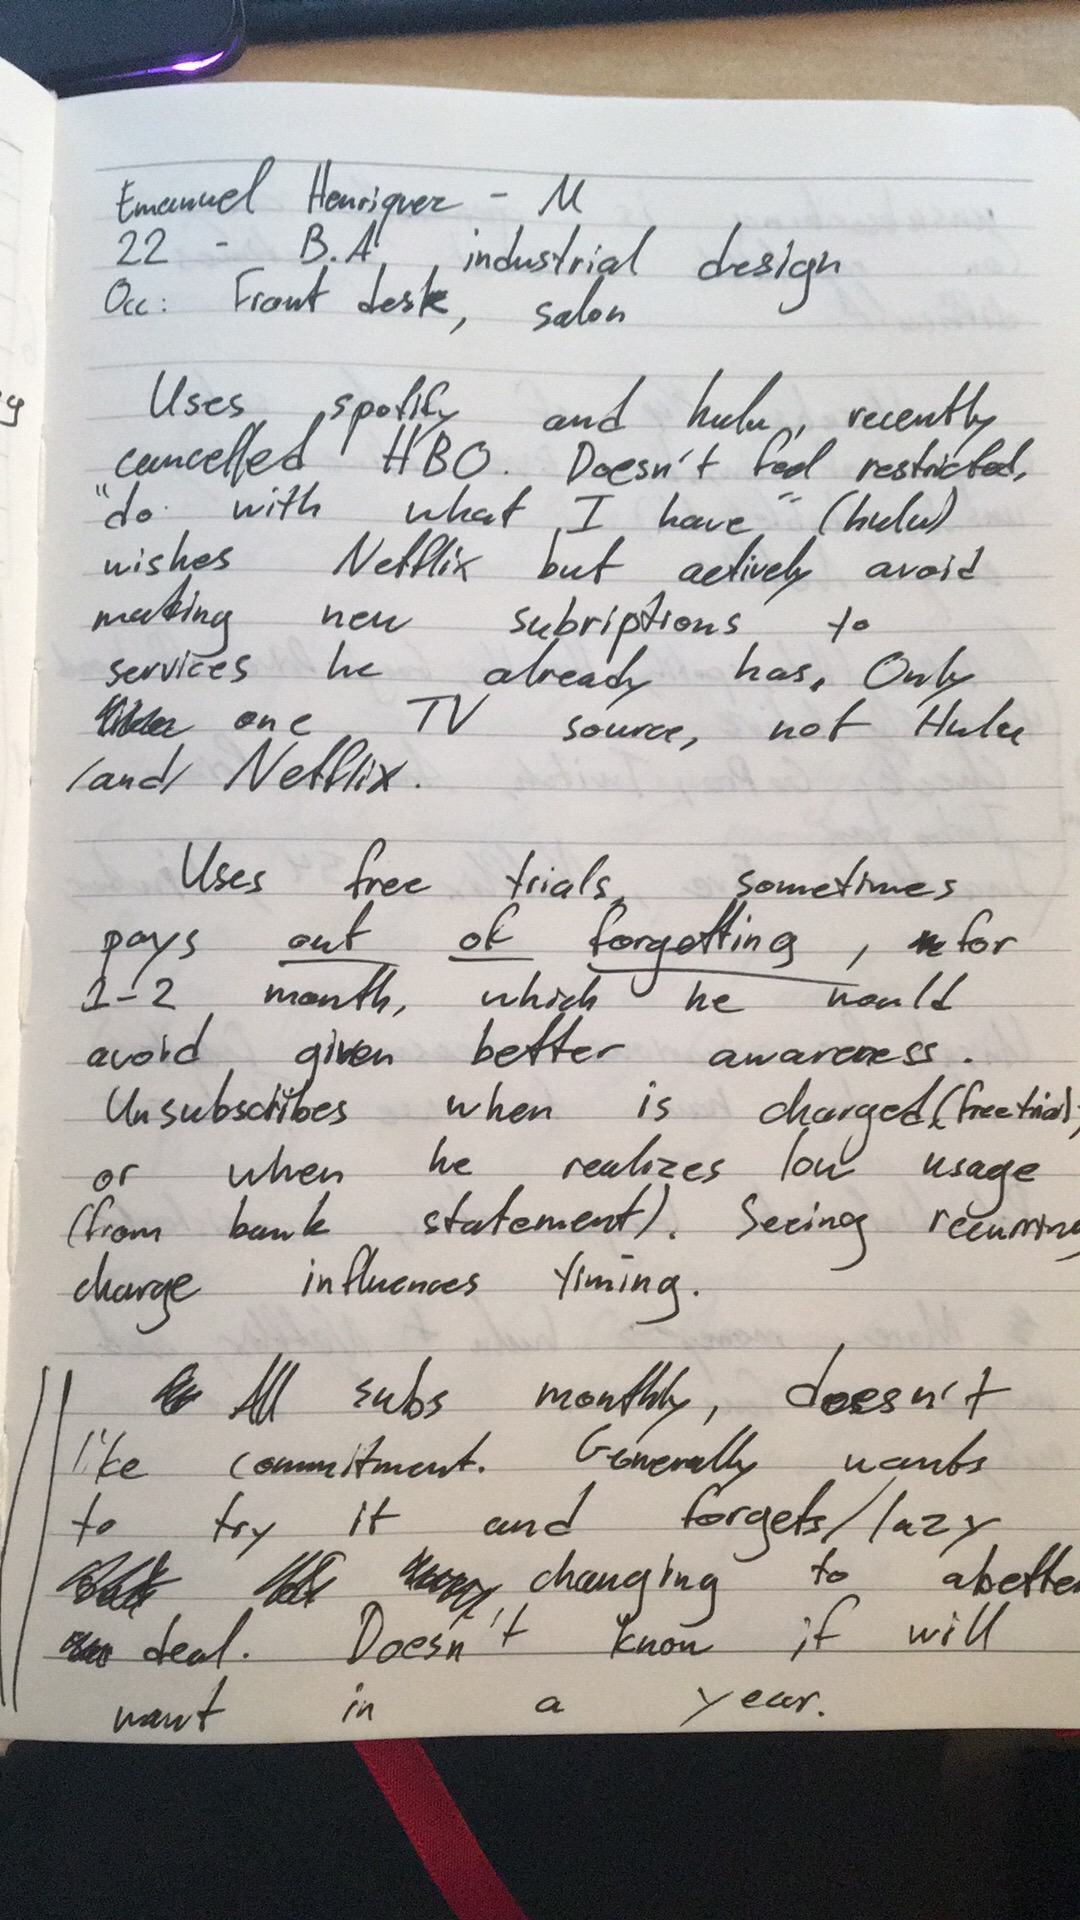 Emanuel Henriquez - M
22 - B.A. industrial design
Occ: Front desk, salon
Uses spotify and hulu, recently
cancelled HBO. Doesn't feel restricted,
"do with what I have" (hulu)
wishes Netflix but actively avoid
making new subriptions to
services he already has. Only
one TV source, not Hulu
/and/ Netflix.
Uses free trials, sometimes
pays out of forgetting, for
1-2 month, which he would
avoid given better awareness.
Unsubscribes when is charged (free trial),
or when he realizes low usage
(from bank statement). Seeing recurring
charge influences timing.
All subs monthly, doesn't
like commitment. Generally wants
to try it and forgets/lazy
changing to a better
deal. Doesn't know if will
want in a year.